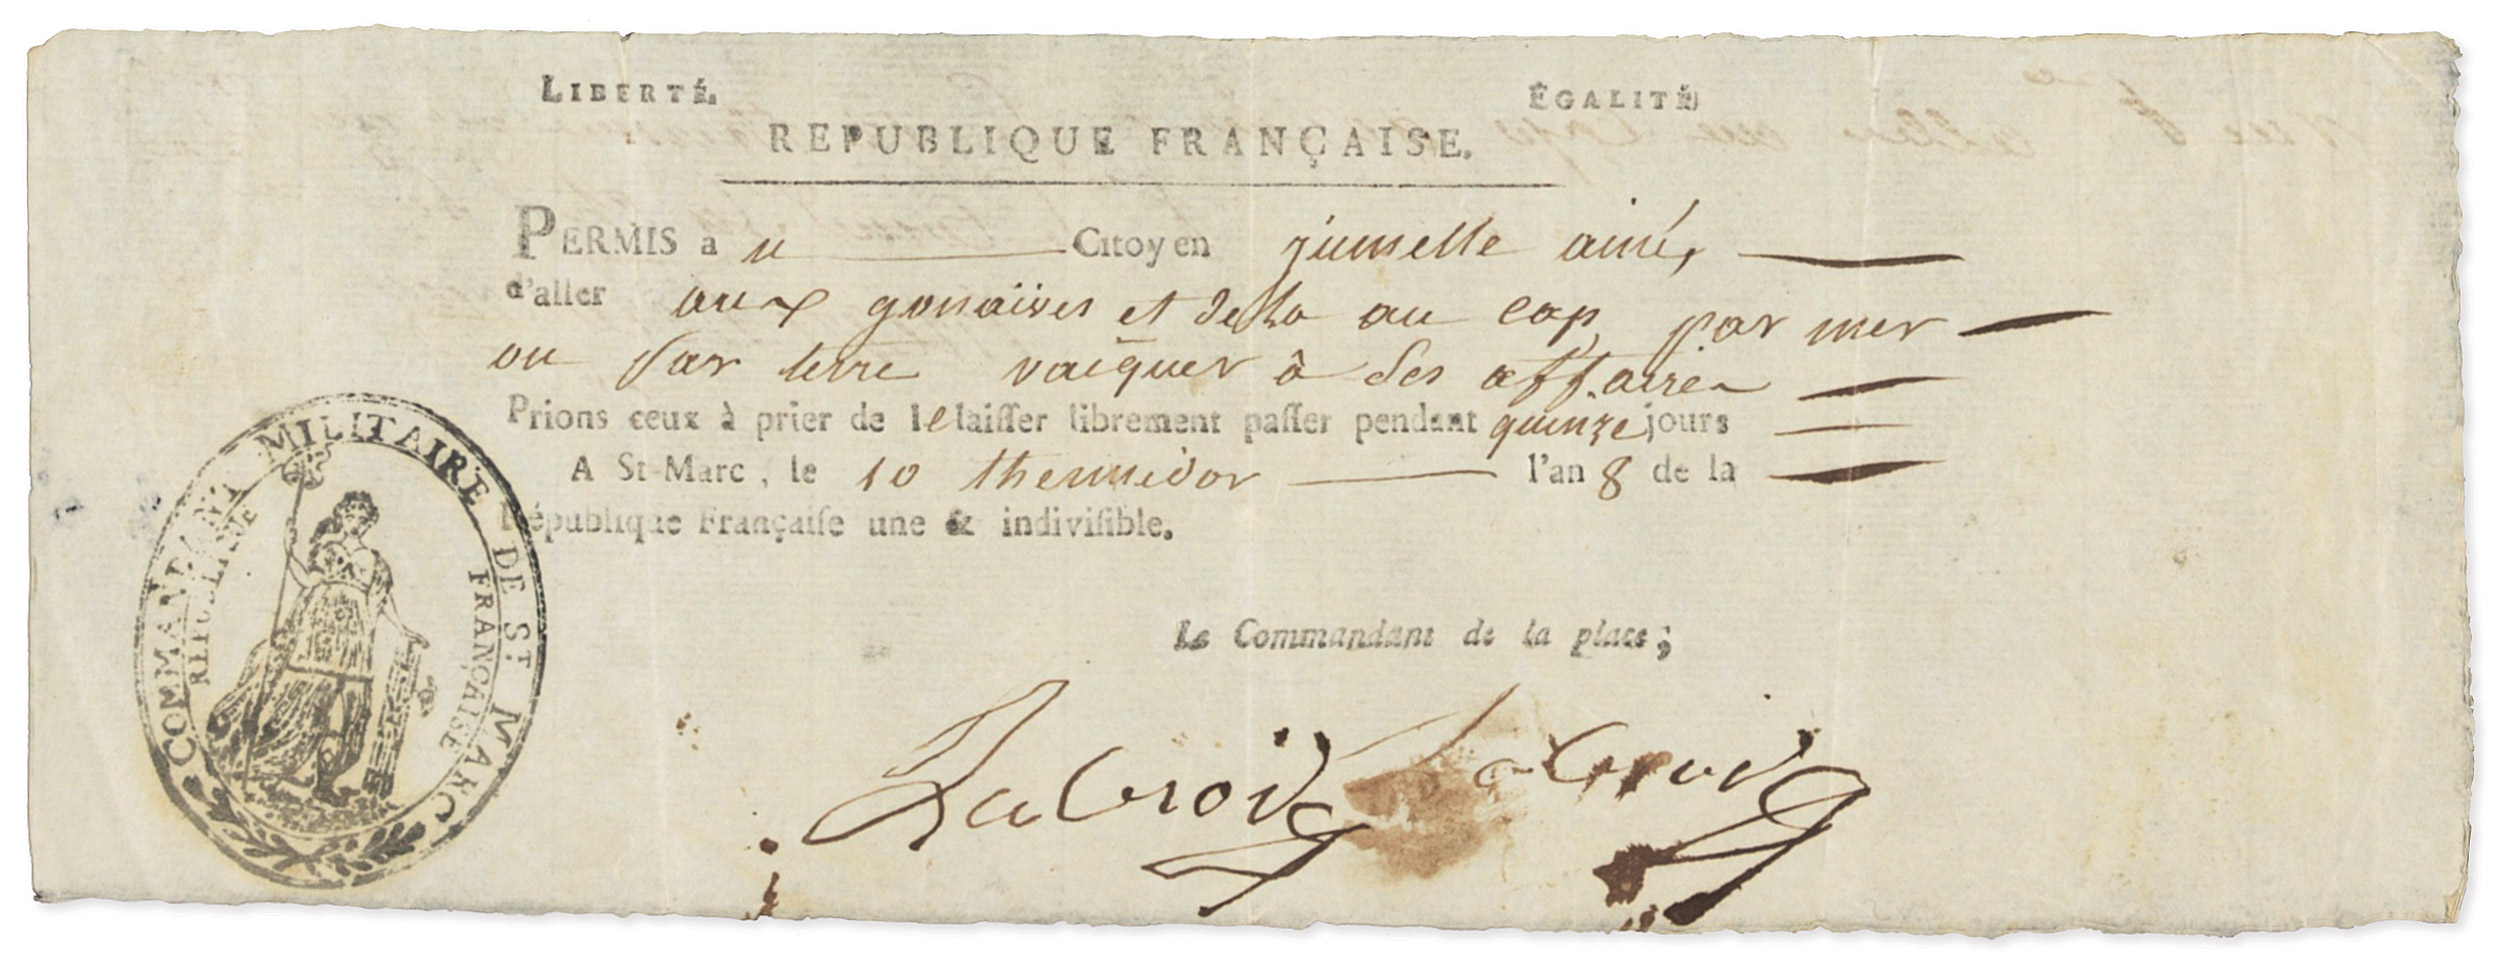 LIBERTÉ. ÉGALITÉ
REPUBLIQUE FRANÇAISE.
PERMIS a u Citoyen jumelle ainé,
d'aller aux gonaives et della au cap par mer
ou par terre vaiquer à ses affaires
Prions ceux à prier de le laiſſer librement paſſer pendant quinze jours
A St-Marc, le 10 thermidor l'an 8 de la
République Françaiſe une & indiviſible.
COMMANDANT MILITAIRE DE ST MARC
REPUBLIQUE FRANÇAISE
Le Commandant de la place;
Lacroix Lacroix